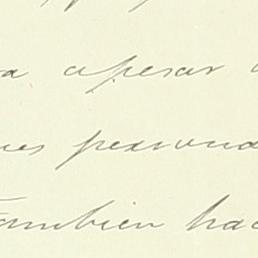 a apesar
es persona
También hac